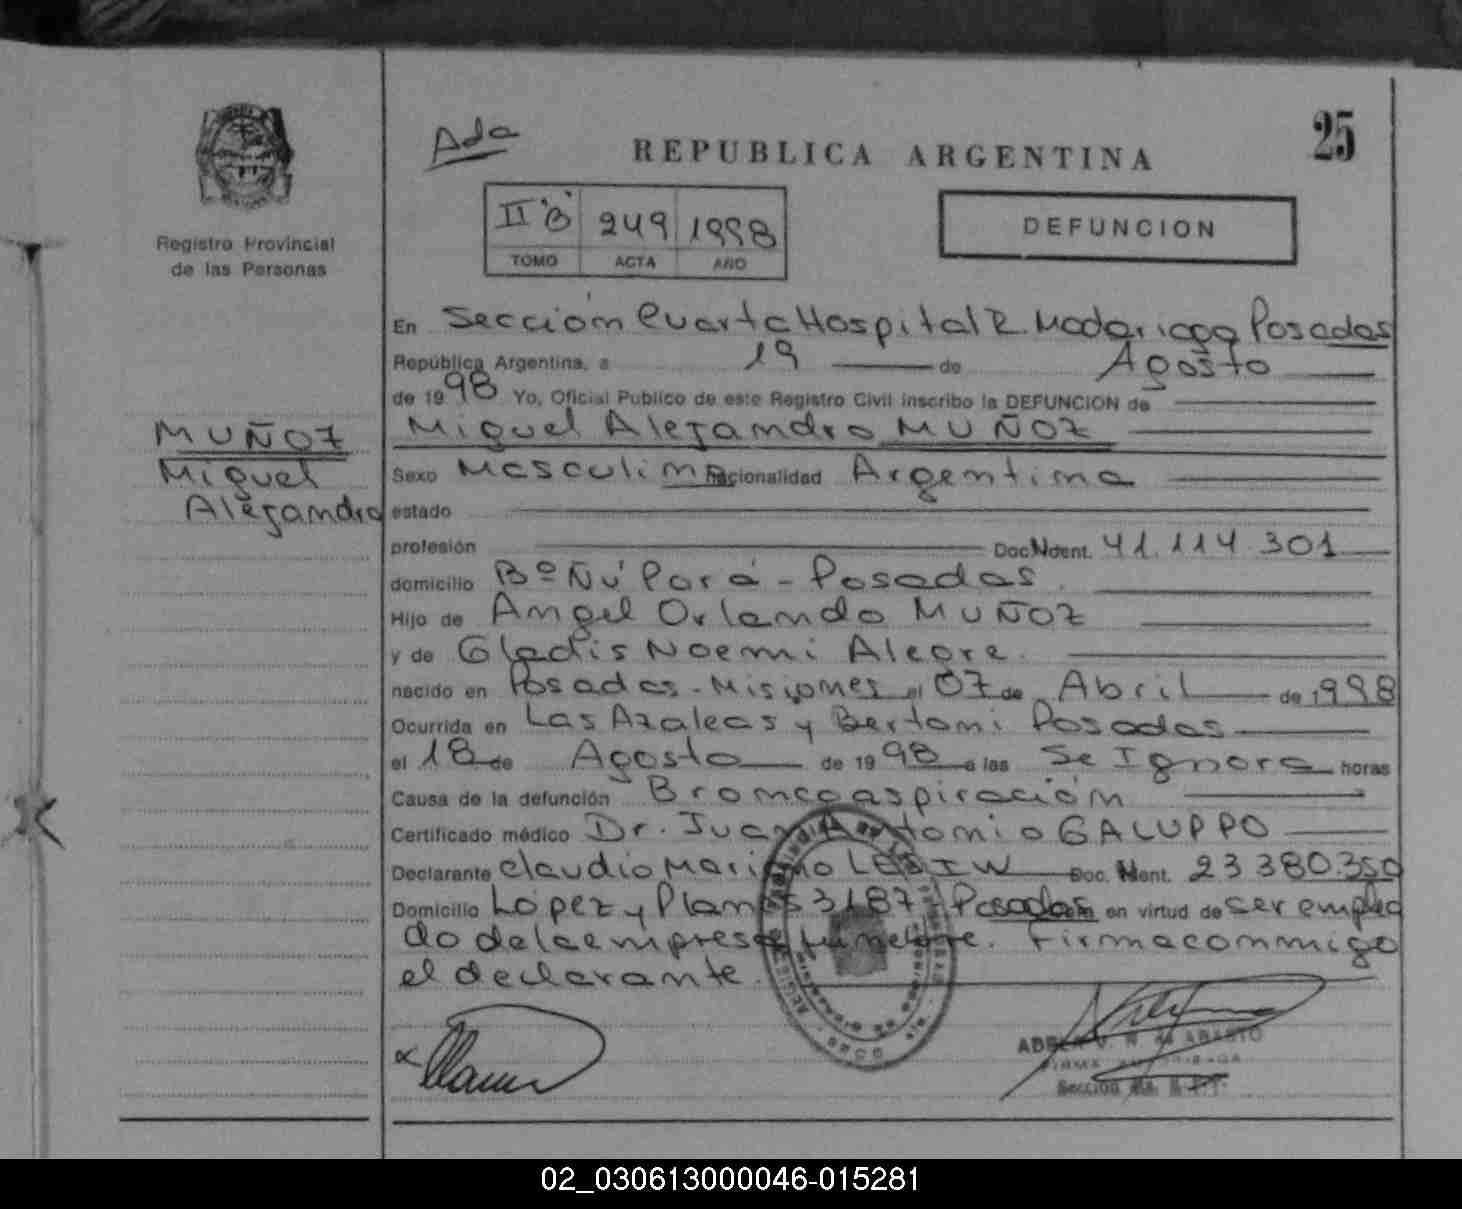 Ada
REPUBLICA ARGENTINA
25
II "B" 249 1998
TOMO ACTA AÑO
DEFUNCION
Registro Provincial
de las Personas
MUÑOZ
Miguel
Alejandro
En Sección Cuarta Hospital R. Madariaga Posadas
República Argentina, a 19 de Agosto
de 1998 Yo, Oficial Publico de este Registro Civil inscribo la DEFUNCION de
Miguel Alejandro MUÑOZ
Sexo Masculino nacionalidad Argentina
estado
profesión Doc. Ident. 41.114.301
domicilio Bº Ñu Porá - Posadas.
Hijo de Angel Orlando MUÑOZ
y de Gladis Noemi Alegre.
nacido en Posadas - Misiones el 07 de Abril de 1998
Ocurrida en Las Azaleas y Bertoni Posadas
el 18 de Agosto de 1998 a las Se Ignora horas
Causa de la defunción Broncoaspiración
Certificado médico Dr. Juan Antonio GALUPPO
Declarante Claudio Mariano Doc. Ident. 23 380.350
Domicilio López y Planes 3187, Posadas en virtud de ser emplea
do de la empresa funebre. Firma conmigo
el declarante.
02_030613000046-015281